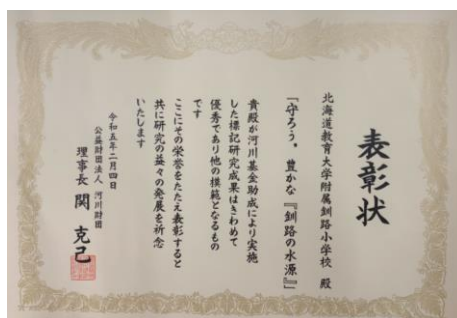 表彰状
北海道教育大学附属釧路小学校 殿
「守ろう。豊かな『釧路の水源』」
貴殿が河川基金助成により実施
した標記研究成果はきわめて
優秀であり他の模範となるもの
です
ここにその栄誉をたたえ表彰すると
共に研究の益々の発展を祈念
いたします
令和五年二月四日
公益財団法人 河川財団
理事長 関 克己